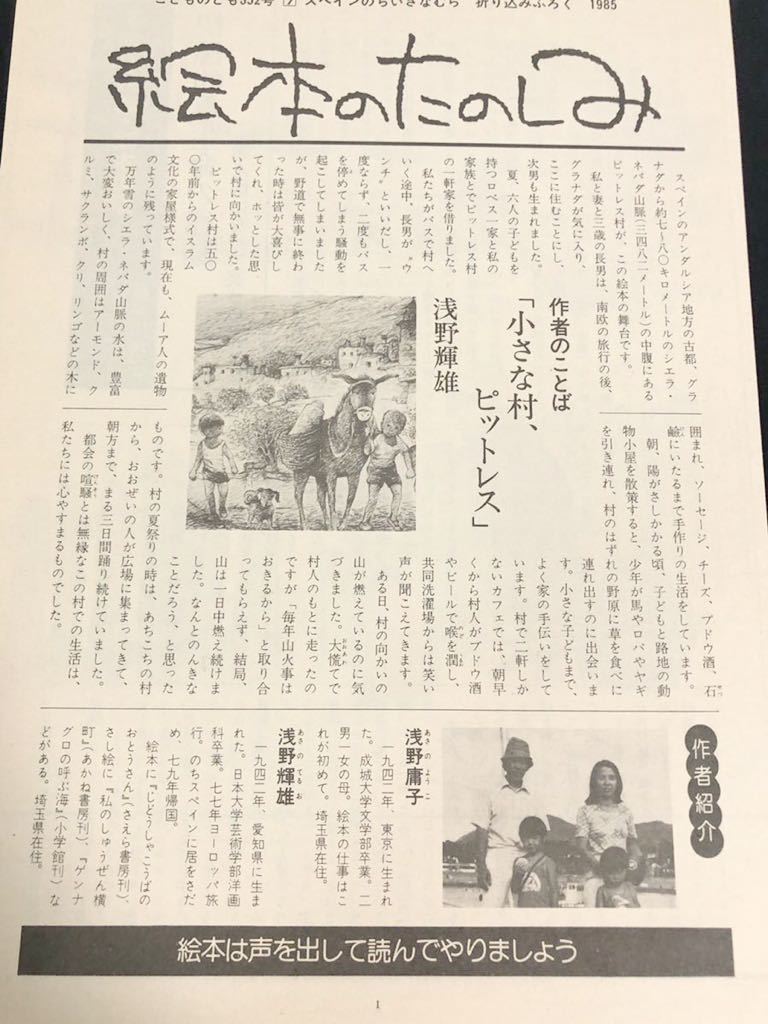 こどものとも352号 7 スペインのちいさなむら 折り込みふろく 1985
絵本のたのしみ
作者のことば
「小さな村、
ピットレス」
浅野輝雄
スペインのアンダルシア地方の古都、グラ
ナダから約七〜八〇キロメートルのシエラ・
ネバダ山脈(三四八二メートル)の中腹にある
ピットレス村が、この絵本の舞台です。
私と妻と三歳の長男は、南欧の旅行の後、
グラナダが気に入り、
ここに住むことにし、
次男も生まれました。
夏、六人の子どもを
持つロペス一家と私の
家族とでピットレス村
の一軒家を借りました。
私たちがバスで村へ
いく途中、長男が〝ウ
ンチ〟といいだし、一
度ならず、二度もバス
を停めてしまう騒動を
起こしてしまいました
が、野道で無事に終わ
った時は皆が大喜びし
てくれ、ホッとした思
いで村に向かいました。
ピットレス村は五〇
〇年前からのイスラム
文化の家屋様式で、現在も、ムーア人の遺物
のように残っています。
万年雪のシエラ・ネバダ山脈の水は、豊富
で大変おいしく、村の周囲はアーモンド、ク
ルミ、サクランボ、クリ、リンゴなどの木に
囲まれ、ソーセージ、チーズ、ブドウ酒、石
鹼にいたるまで手作りの生活をしています。
朝、陽がさしかかる頃、子どもと路地の動
物小屋を散策すると、少年が馬やロバやヤギ
を引き連れ、村のはずれの野原に草を食べに
連れ出すのに出会いま
す。小さな子どもまで、
よく家の手伝いをして
います。村で二軒しか
ないカフェでは、朝早
くから村人がブドウ酒
やビールで喉を潤し、
共同洗濯場からは笑い
声が聞こえてきます。
ある日、村の向かいの
山が燃えているのに気
づきました。大慌てで
村人のもとに走ったの
ですが「毎年山火事は
おきるから」と取り合
ってもらえず、結局、
山は一日中燃え続けま
した。なんとのんきな
ことだろう、と思った
ものです。村の夏祭りの時は、あちこちの村
から、おおぜいの人が広場に集まってきて、
朝方まで、まる三日間踊り続けていました。
都会の喧騒とは無縁なこの村での生活は、
私たちには心やすまるものでした。
作者紹介
浅野庸子
あさの ようこ
一九四二年、東京に生まれ
た。成城大学文学部卒業。二
男一女の母。絵本の仕事はこ
れが初めて。埼玉県在住。
浅野輝雄
あさの てるお
一九四二年、愛知県に生ま
れた。日本大学芸術学部洋画
科卒業。七七年ヨーロッパ旅
行。のちスペインに居をさだ
め、七九年帰国。
絵本に『じどうしゃこうばの
おとうさん』(さえら書房刊)、
さし絵に『私のしゅうぜん横
町』(あかね書房刊)、『ゲンナ
グロの呼ぶ海』(小学館刊)な
どがある。埼玉県在住。
絵本は声を出して読んでやりましょう
1